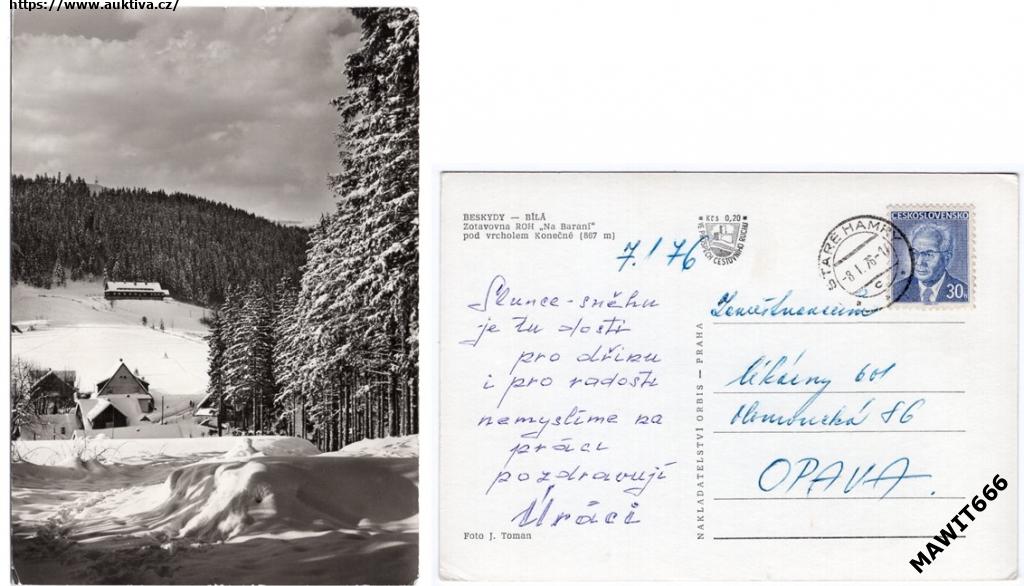 https://www.auktiva.cz/
BESKYDY — BÍLÁ
Zotavovna ROH „Na Baraní"
pod vrcholem Konečné (867 m)
* Kčs 0,20 *
7.1.76
STARÉ HAMRY
-8.1.76-1
c
ČESKOSLOVENSKO
30h
Slunce-sněhu
je tu dosti
pro dřinu
i pro radosti
nemyslíme na
práci
pozdravují
Úráci
Foto J. Toman
NAKLADATELSTVÍ ORBIS — PRAHA
Zaměstnancům
lékárny 601
Olomoucká 86
OPAVA.
MAWIT666